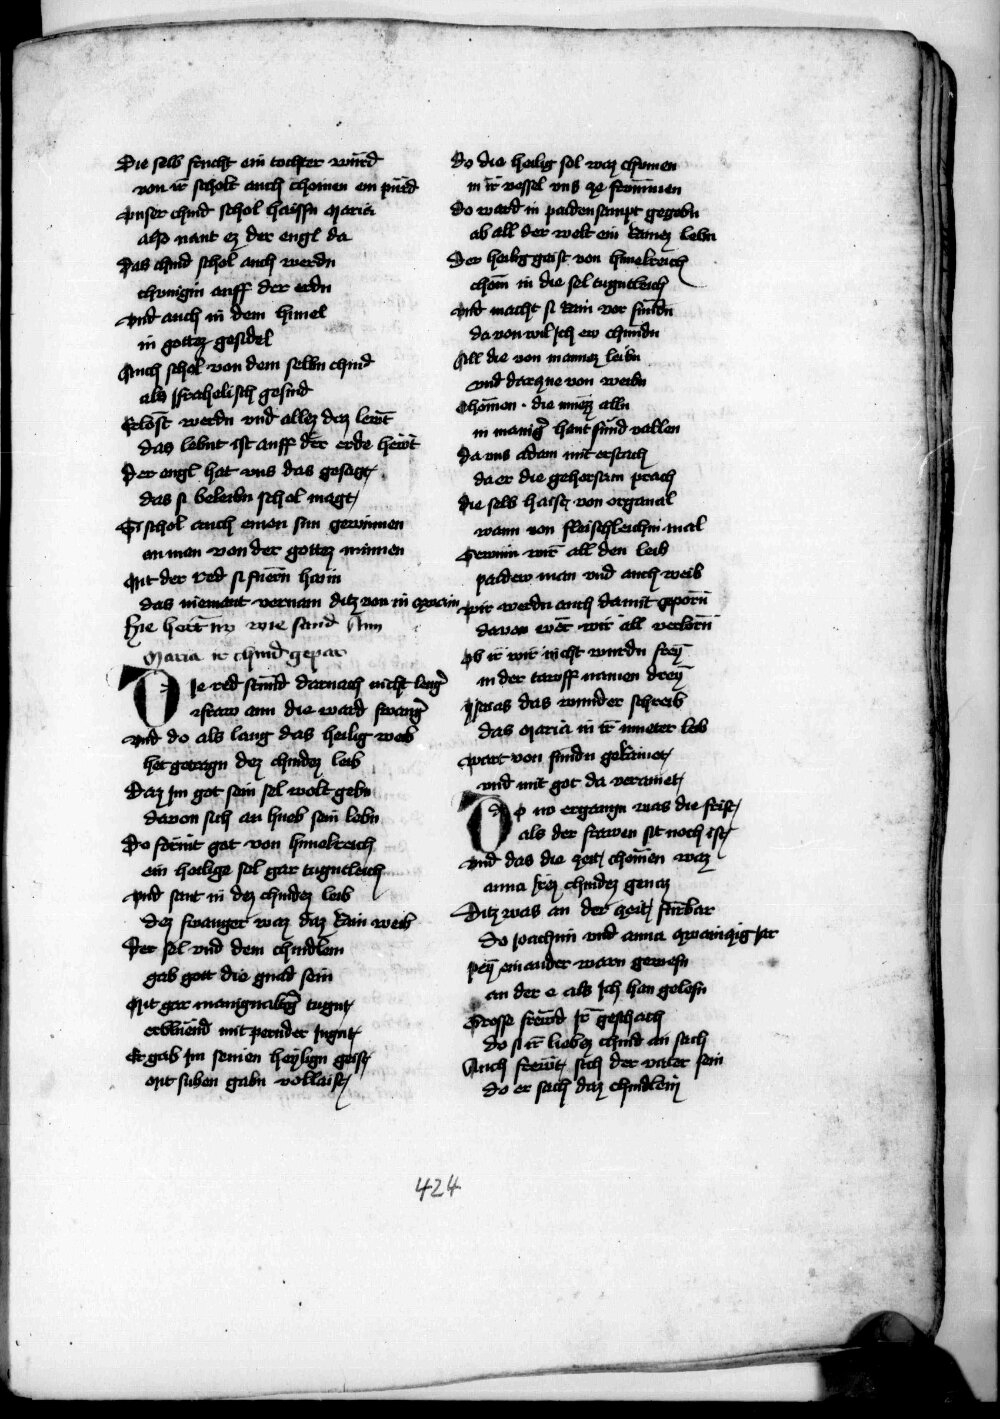 Die selb frucht ein tochter würd
von ir scholt auch chomen ein pürd
Vnser chind schol haissn Maria
also nant ez der engl da
Das chind schol auch werdn
chvnigin auff der erdn
Vnd auch in dem himel
in gottez gesidel
Auch schol von dem selbn chind
als Israhelisch gesind
Erlöst werdn vnd allez dez lewt
das lebnt ist auff der erde hewt
Der engl hat vns das gesagt
das si beleibn schol magt
Si schol auch einen sun gewinnen
an man von der gottez minnen
Mit der red si fuern haim
das niemant vernam ditz von in
Hie hort nv wie sand Ann
Maria ir chind gepar
Die red stund darnach nicht leng̃
vraw ann die ward swang̃
Vnd do als lang das heilig weib
het getragn dez chindez leib
Daz jm got sein sel wolt gebn
davon sich an hueb sein lebn
Do formt got von himelreich
ein heilige sel gar tugntleich
Vnd sant in dez chindez leib
dez swanger waz daz rain weib
Der sel vnd dem chindlein
gab gott die gnad sein
Mit gar manigualtig̃ tugnt
erblüend mit pernder jugnt
Er gab jm seinen heylign geist
mit siben gabn vollaist
Do die heilig sel waz chomen
in ir vessel vns ze frommen
Do ward in paiden sampt gegebn
ab all der welt ein rainez lebn
Der heilig geist von himelreich
chom in die sel tugntleich
Vnd macht si rain vor sundn
da von wil jch ew chundn
All die von mannez leibn
vnd darzue von weibn
Chomen · die muez alln
in manig̃ hant sund vallen
Da vns adam mit erstach
da er die gehorsam prach
Die selb haist von organal
wann von fleischleichm mal
Gewinn wir all den leib
paidew man vnd auch weib
Wir werdn auch damit geporn
davon wer wir all verlorn
Ob ir wir nicht wurdn frey
in der tawff namen drey
Jsaias das wunder schreib
das Maria in ir mueter leib
Wart von sundn gerainet
vnd mit got da verainet
Do nv ergangn was die frist
als der frawen sit noch ist
Vnd das die zeit chomen waz
anna jrez chindez genaz
Ditz was an der zeit fürbar
do joachim vnd anna zwainzig jar
Pey einander warn gewesn
an der e als jch han gelesn
Grosse frewd jr geschach
do si ir liebez chind an sach
Auch frewt sich der vater sein
do er sach daz chindlein
424